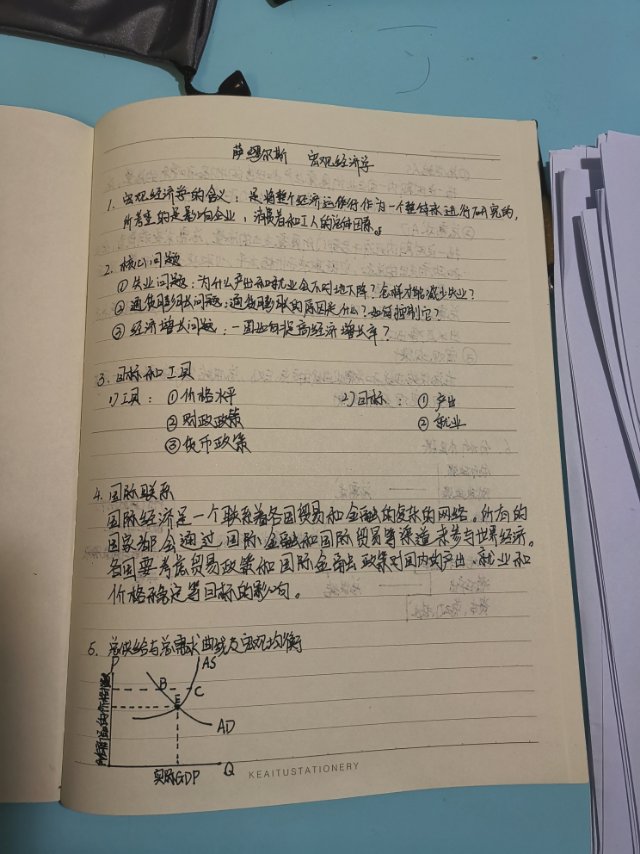 萨缪尔斯 宏观经济学
1. 宏观经济学的含义：是将整个经济运行作为一个整体来进行研究的，
所考查的是影响企业，消费者和工人的运作因素。
2. 核心问题
① 失业问题：为什么产出和就业会不时地下降？怎样才能减少失业？
② 通货膨胀问题：通货膨胀的原因是什么？如何控制它？
③ 经济增长问题：一国如何提高经济增长率？
3. 目标和工具
1) 工具：① 价格水平 2) 目标：① 产出
② 财政政策 ② 就业
③ 货币政策
4. 国际联系
国际经济是一个联系着各国贸易和金融的复杂的网络。所有的
国家都会通过国际金融和国际贸易等渠道来参与世界经济。
各国要考虑贸易政策和国际金融政策对国内的产出、就业和
价格稳定等目标的影响。
5. 总供给与总需求曲线与宏观均衡
P AS
B C
E
AD
实际GDP Q
KEAITUSTATIONERY